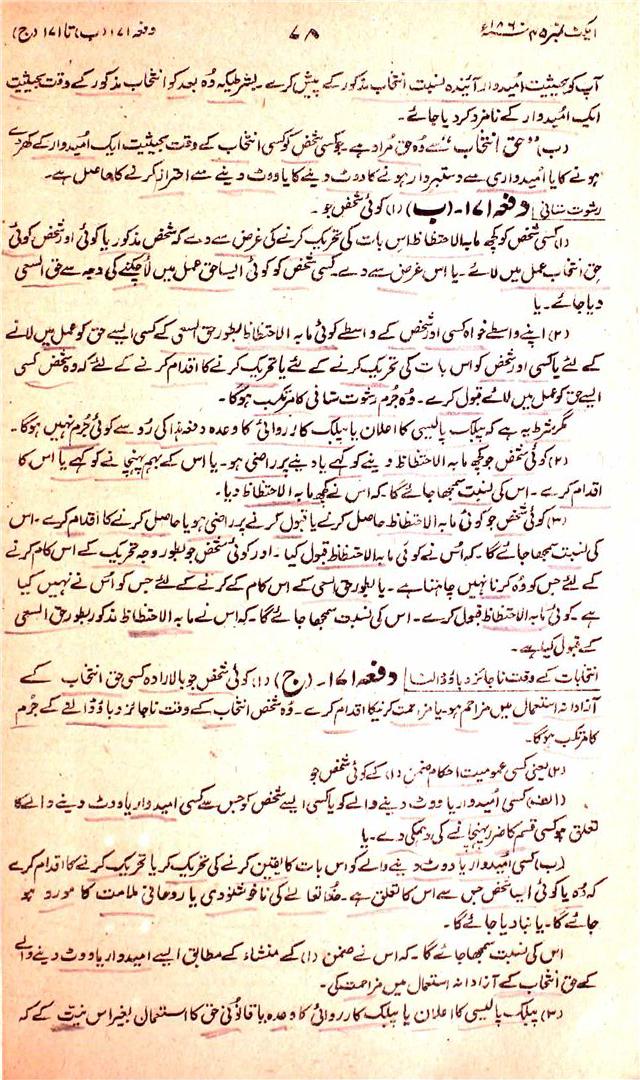 ایکٹ نمبر ۴۵ ۱۸۶۰ء ۷۸ دفعہ ۱۷۱ (ب) تا ۱۷۱ (ج)
آپ کو بحیثیت امیدوار آئندہ نسبت انتخاب مذکور کے پیش کرے۔ بشرطیکہ وُہ بعد کو انتخاب مذکور کے وقت بحیثیت
ایک اُمیدوار کے نامزد کر دیا جائے۔
(ب) "حق انتخاب" سے وُہ حق مُراد ہے۔ جو کسی شخص کو کسی انتخاب کے وقت بحیثیت ایک اُمیدوار کے کھڑے
ہونے کا یا اُمیدواری سے دستبردار ہونے کا ووٹ دینے کا یا ووٹ دینے سے احتراز کرنے کا حاصل ہے۔
رشوت ستانی دفعہ ۱۷۱۔ (ب) (۱) کوئی شخص جو۔
(۱) کسی شخص کو کچھ مابہ الاحتظاظ اس بات کی تحریک کرنے کی غرض سے دے کہ شخص مذکور یا کوئی اور شخص کوئی
حق انتخاب عمل میں لائے۔ یا اس غرض سے دے۔ کسی شخص کو کوئی ایسا حق عمل میں لا چکنے کی وجہ سے حق السعی
دیا جائے۔ یا
(۲) اپنے واسطے خواہ کسی اور شخص کے واسطے کوئی مابہ الاحتظاظ بطور حق السعی کے کسی ایسے حق کو عمل میں لانے
کے لئے یا کسی اور شخص کو اس بات کی تحریک کرنے کے لئے یا تحریک کرنے کا اقدام کرنے کے لئے کہ وہ شخص کسی
ایسے حق کو عمل میں لائے قبول کرے۔ وُہ جُرم رشوت ستانی کا مرتکب ہوگا۔
مگر شرط یہ ہے کہ پبلک پالیسی کا اعلان یا پبلک کارروائی کا وعدہ دفعہ ہذا کی رُو سے کوئی جُرم نہیں ہوگا۔
(۲) کوئی شخص جو کچھ مابہ الاحتظاظ دینے کو کہے یا دینے پر راضی ہو۔ یا اس کے بہم پہنچانے کو کہے یا اس کا
اقدام کرے۔ اس کی نسبت سمجھا جائے گا۔ کہ اس نے کچھ مابہ الاحتظاظ دیا۔
(۳) کوئی شخص جو کوئی مابہ الاحتظاظ حاصل کرے یا قبول کرنے پر راضی ہو یا حاصل کرنے کا اقدام کرے۔ اس
کی نسبت سمجھا جائے گا۔ کہ اُس نے کوئی مابہ الاحتظاظ قبول کیا۔ اور کوئی شخص جو بطور وجہ تحریک کے اس کام کرنے
کے لئے جس کو وُہ کرنا نہیں چاہتا ہے۔ یا بطور حق السعی کے اس کام کے کرنے کے لئے جس کو اُس نے نہیں کیا
ہے۔ کوئی مابہ الاحتظاظ قبول کرے۔ اس کی نسبت سمجھا جائے گا۔ کہ اس نے مابہ الاحتظاظ مذکور بطور حق السعی
کے قبول کیا ہے۔
انتخابات کے وقت ناجائز دباؤ ڈالنا دفعہ ۱۷۱۔ (ج) (۱) کوئی شخص جو بالارادہ کسی حق انتخاب کے
آزادانہ استعمال میں مزاحم ہو۔ یا مزاحمت کرنیکا اقدام کرے۔ وُہ شخص انتخاب کے وقت ناجائز دباؤ ڈالنے کے جُرم
کا مرتکب ہوگا۔
(۲) یعنی کسی عمومیت احکام ضمن (۱) کے کوئی شخص جو
(الف) کسی اُمیدوار یا ووٹ دینے والے کو یا کسی ایسے شخص کو جس سے کسی امیدوار یا ووٹ دینے والے کا
تعلق ہو کسی قسم کا ضرر پہنچانے کی دھمکی دے۔ یا
(ب) کسی اُمیدوار یا ووٹ دینے والے کو اس بات کا یقین کرنے کی تحریک کر یا تحریک کرنے کا اقدام کرے
کہ وُہ یا کوئی ایسا شخص جس سے اس کا تعلق ہے۔ خُدا تعالے کی ناخوشنودی یا روحانی ملامت کا مورد ہو
جائے گا۔ یا بنا دیا جائے گا۔
اس کی نسبت سمجھا جائے گا۔ کہ اس نے ضمن (۱) کے منشاء کے مطابق ایسے امیدوار یا ووٹ دینے والے
کے حق انتخاب کے آزادانہ استعمال میں مزاحمت کی۔
(۳) پبلک پالیسی کا اعلان یا پبلک کارروائی کا وعدہ یا قانُونی حق کا استعمال بغیر اس نیت کے کہ